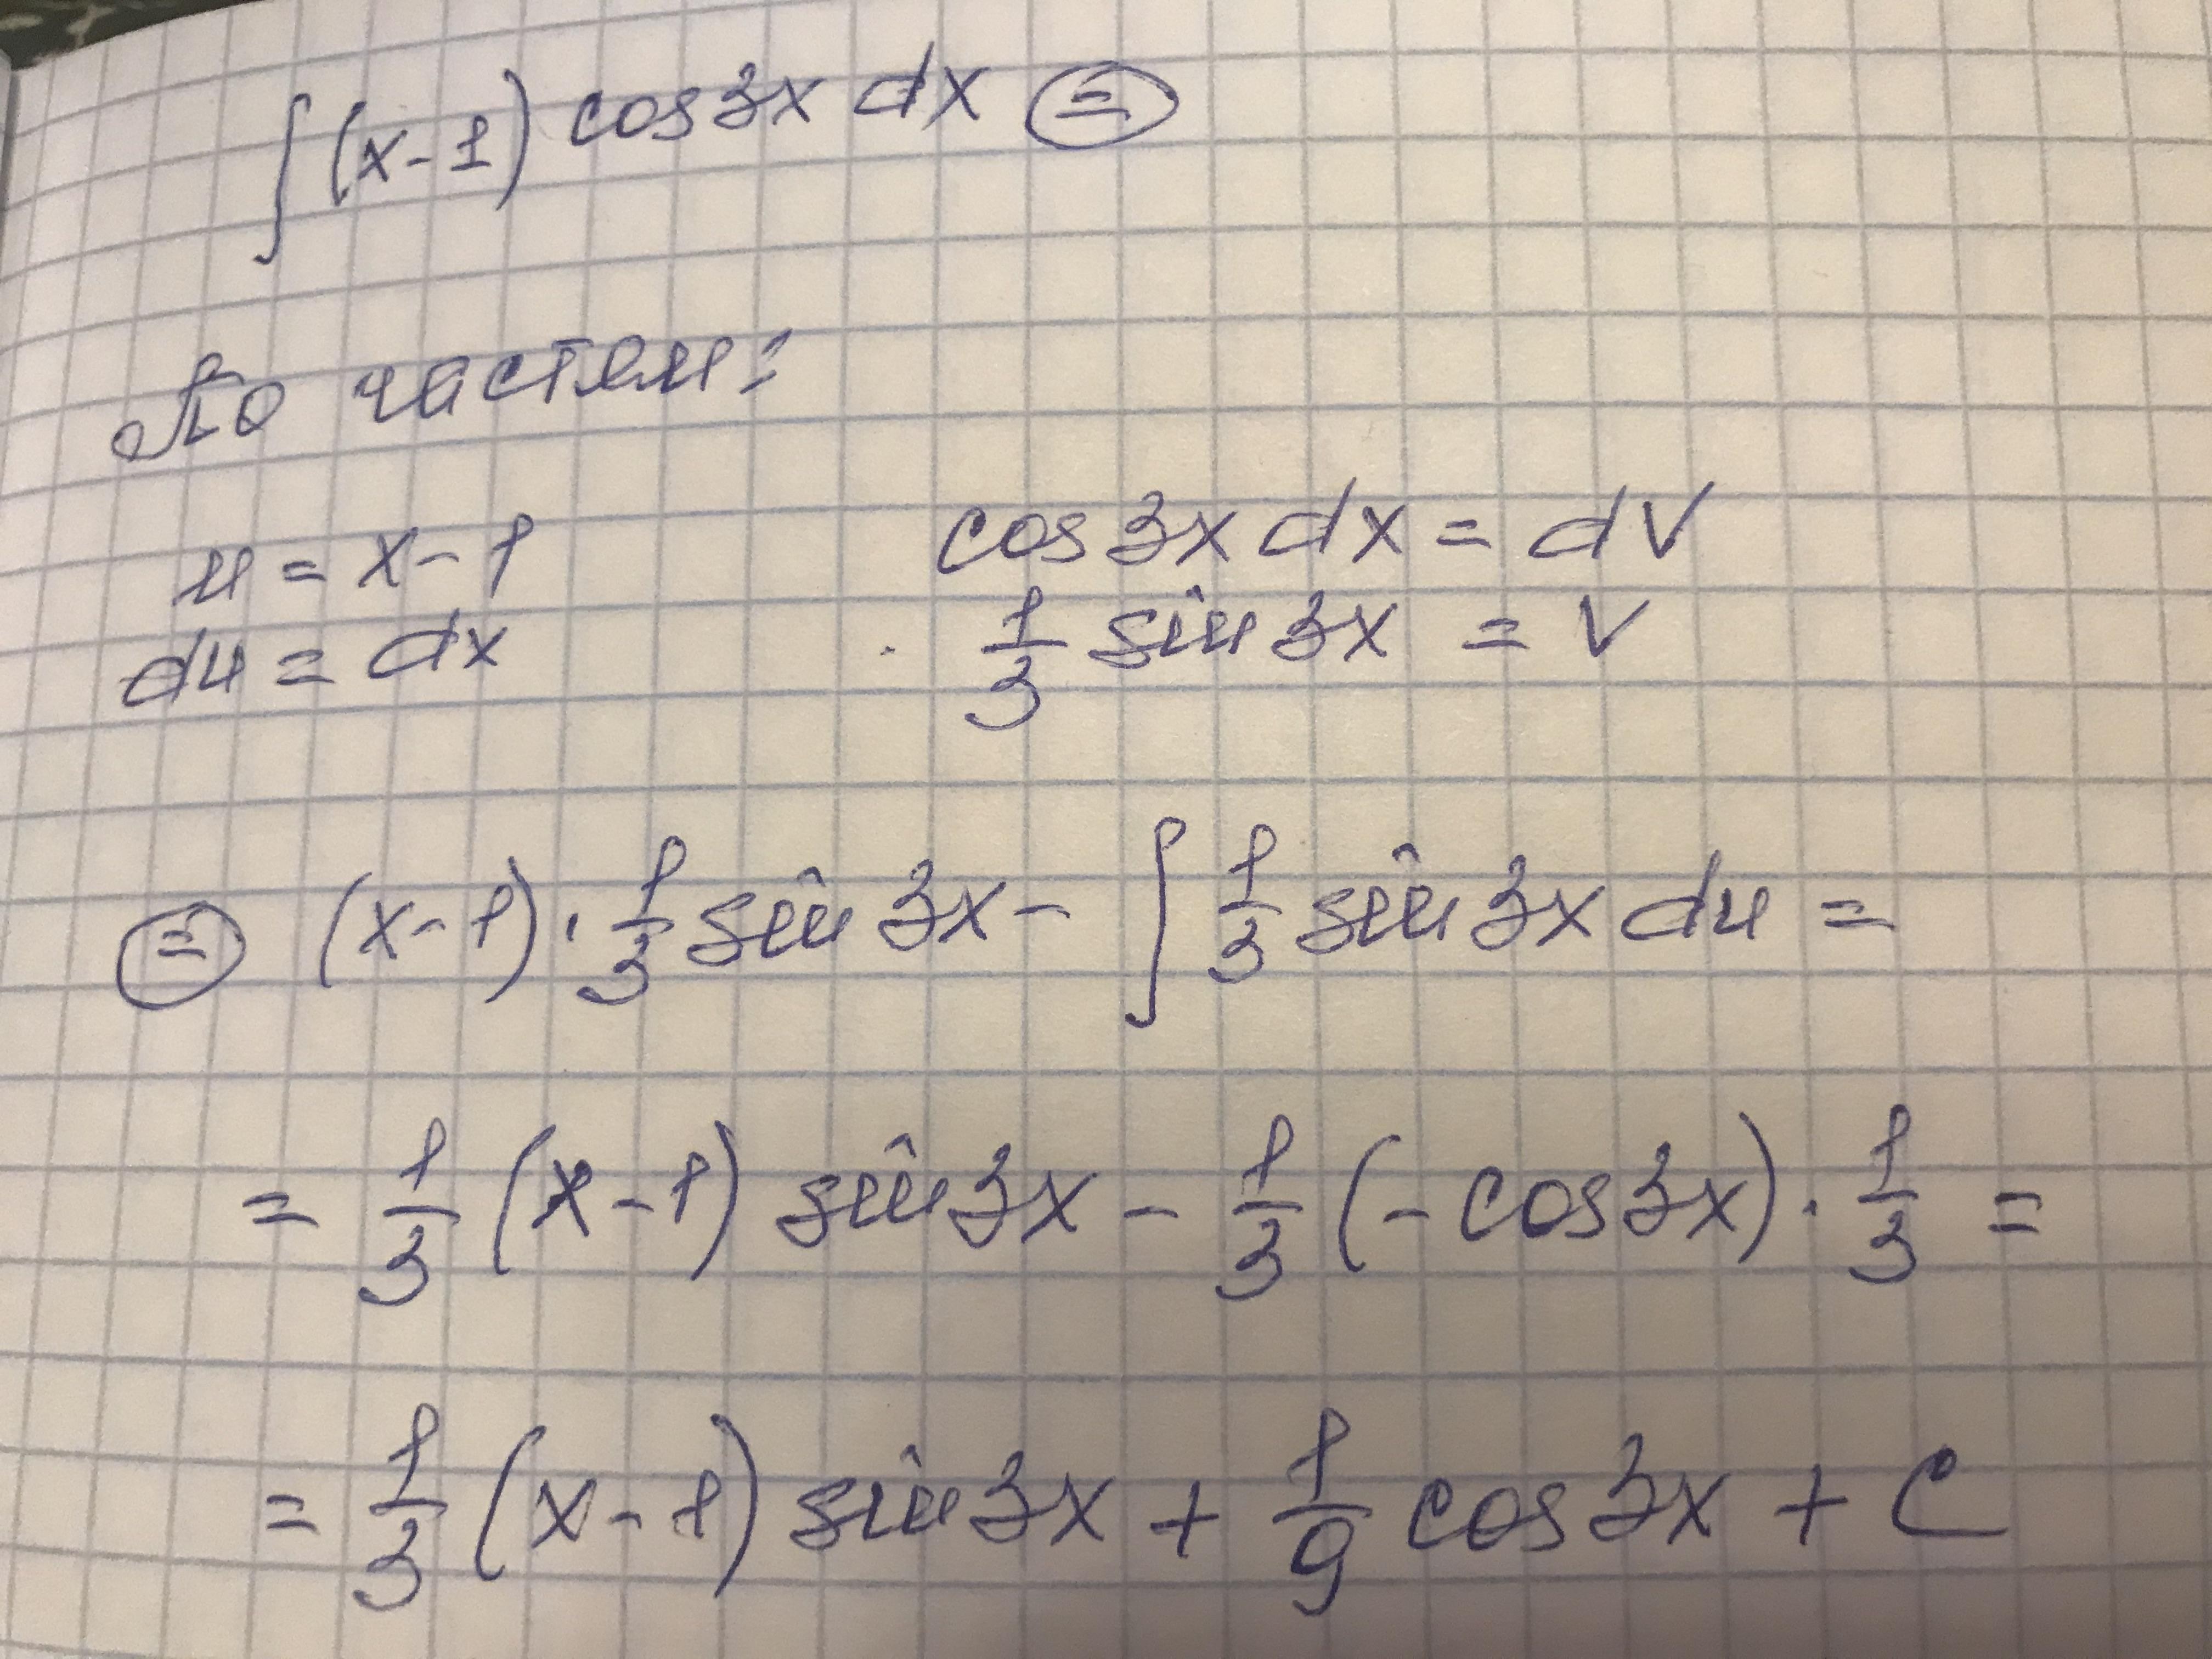 ∫(x-1) cos3x dx =
По частям:
u = x-1 cos3x dx = dV
du = dx 1/3 sin3x = V
= (x-1)·1/3 sin3x - ∫ 1/3 sin3x du =
= 1/3 (x-1) sin3x - 1/3 (-cos3x)·1/3 =
= 1/3 (x-1) sin3x + 1/9 cos3x + C